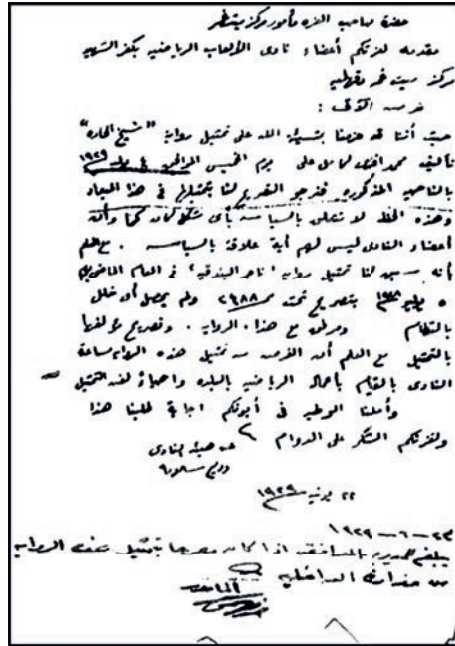 حضرة صاحب العزة مأمور مركز ميت غمر
مقدمه لعزتكم أعضاء نادى الألعاب الرياضيه بكفر الشهيد
مركز ميت غمر دقهليه
نعرض الآتى :
حيث أننا قد عزمنا بمشيئة الله على تمثيل رواية "شيخ الحاره"
تأليف محمد افندى كامل على يوم الخميس الموافق ٤ يوليه ١٩٢٩
بالناحيه المذكوره فنرجو التصريح لنا بتمثيلها فى هذا الميعاد
وهذه الحفله لا تتعلق بالسياسه بأى شكل كان كما وأن
أعضاء النادى ليس لهم أية علاقة بالسياسه . مع العلم
أنه سبق لنا تمثيل رواية "تاجر البندقيه" فى العام الماضى
٥ يوليه ١٩٢٨ بتصريح تحت ٢٩٨٨ ولم يحصل أى خلل
بالنظام ومرفق مع هذا الروايه . وتصريح مؤلفها
بالتمثيل مع العلم أن الغرض من تمثيل هذه الروايه مساعدة
النادى بالقيام بأعماله الرياضيه بالبلده واحياء لفن التمثيل
وأملنا الوطيد فى أبوتكم اجابة طلبنا هذا
ولعزتكم الشكر على الدوام
عن هيئة النادى
٢٢ يونيه ١٩٢٩
٢٣-٦-١٩٢٩
للمديريه الموافقه اذا كان مصرحا بتمثيل هذه الروايه
من الداخليه
المأمور